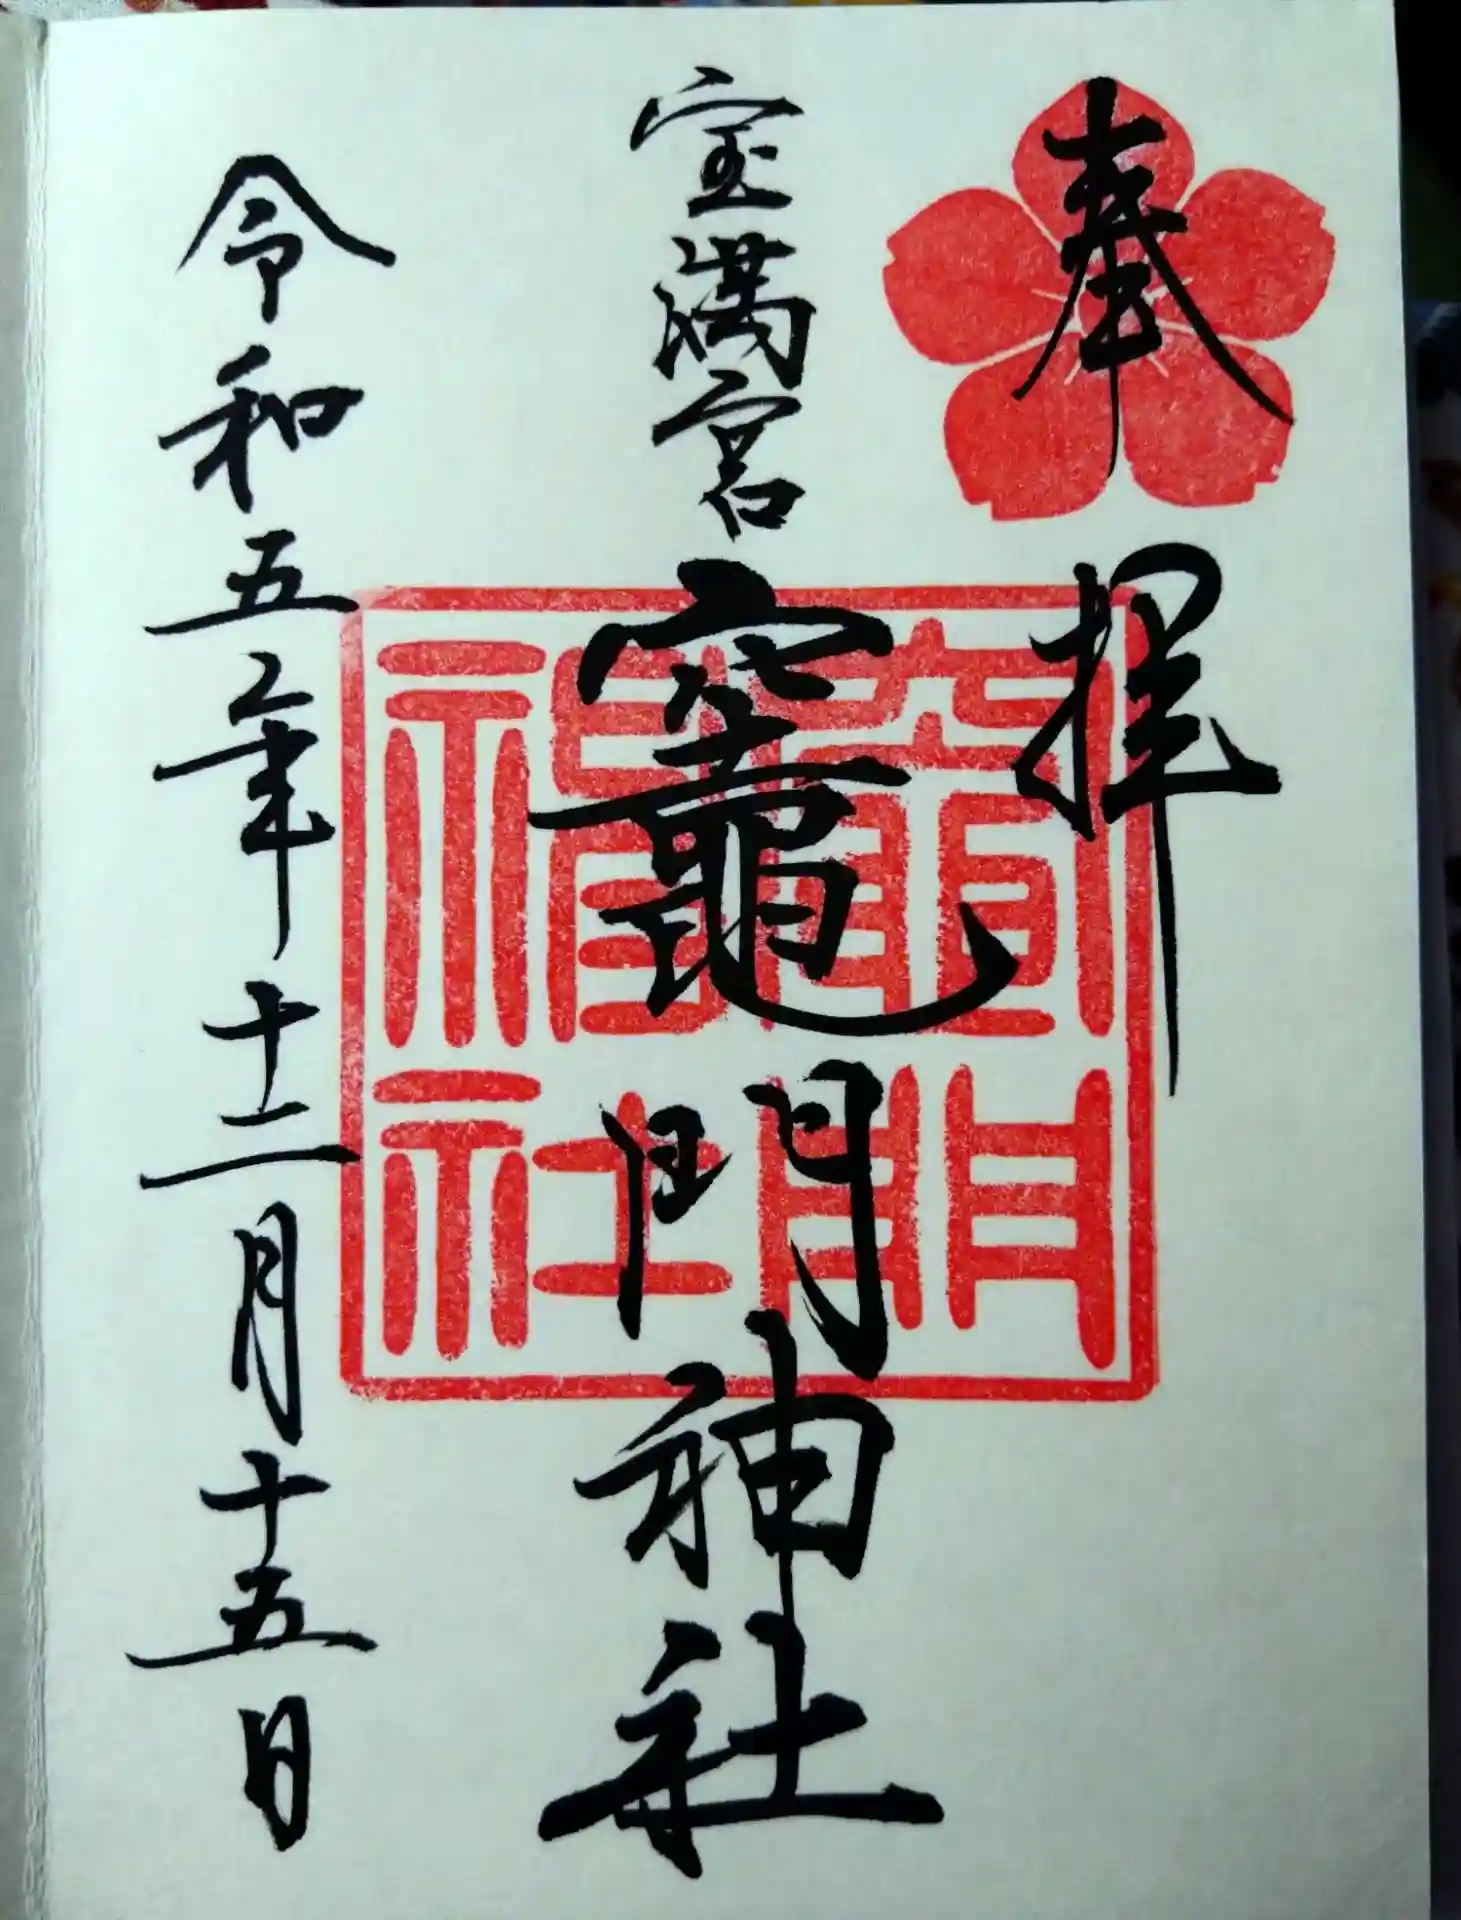 奉拝
宝満宮
竈門神社
竈門神社
令和五年十二月十五日